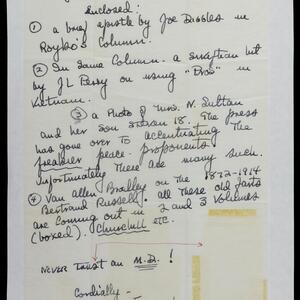 Enclosed:
① a brief epistle by Joe Dabbles in
Royko's Column.
② In same Column - a snaption bit
by J L Perry on using "Bros" in
Vietnam.
③ a Photo of Mrs. N. Sultan
and her son 18. The press
has gone over to accentuating The
freakier peace proponents.
Unfortunately There are many such.
④ Van Allen Bradley on the 1872-1914
Bertrand Russell. all These old farts
are coming out in 2 and 3 volumes
(boxed). Churchill etc.
NEVER Trust an M.D. !
Cordially -